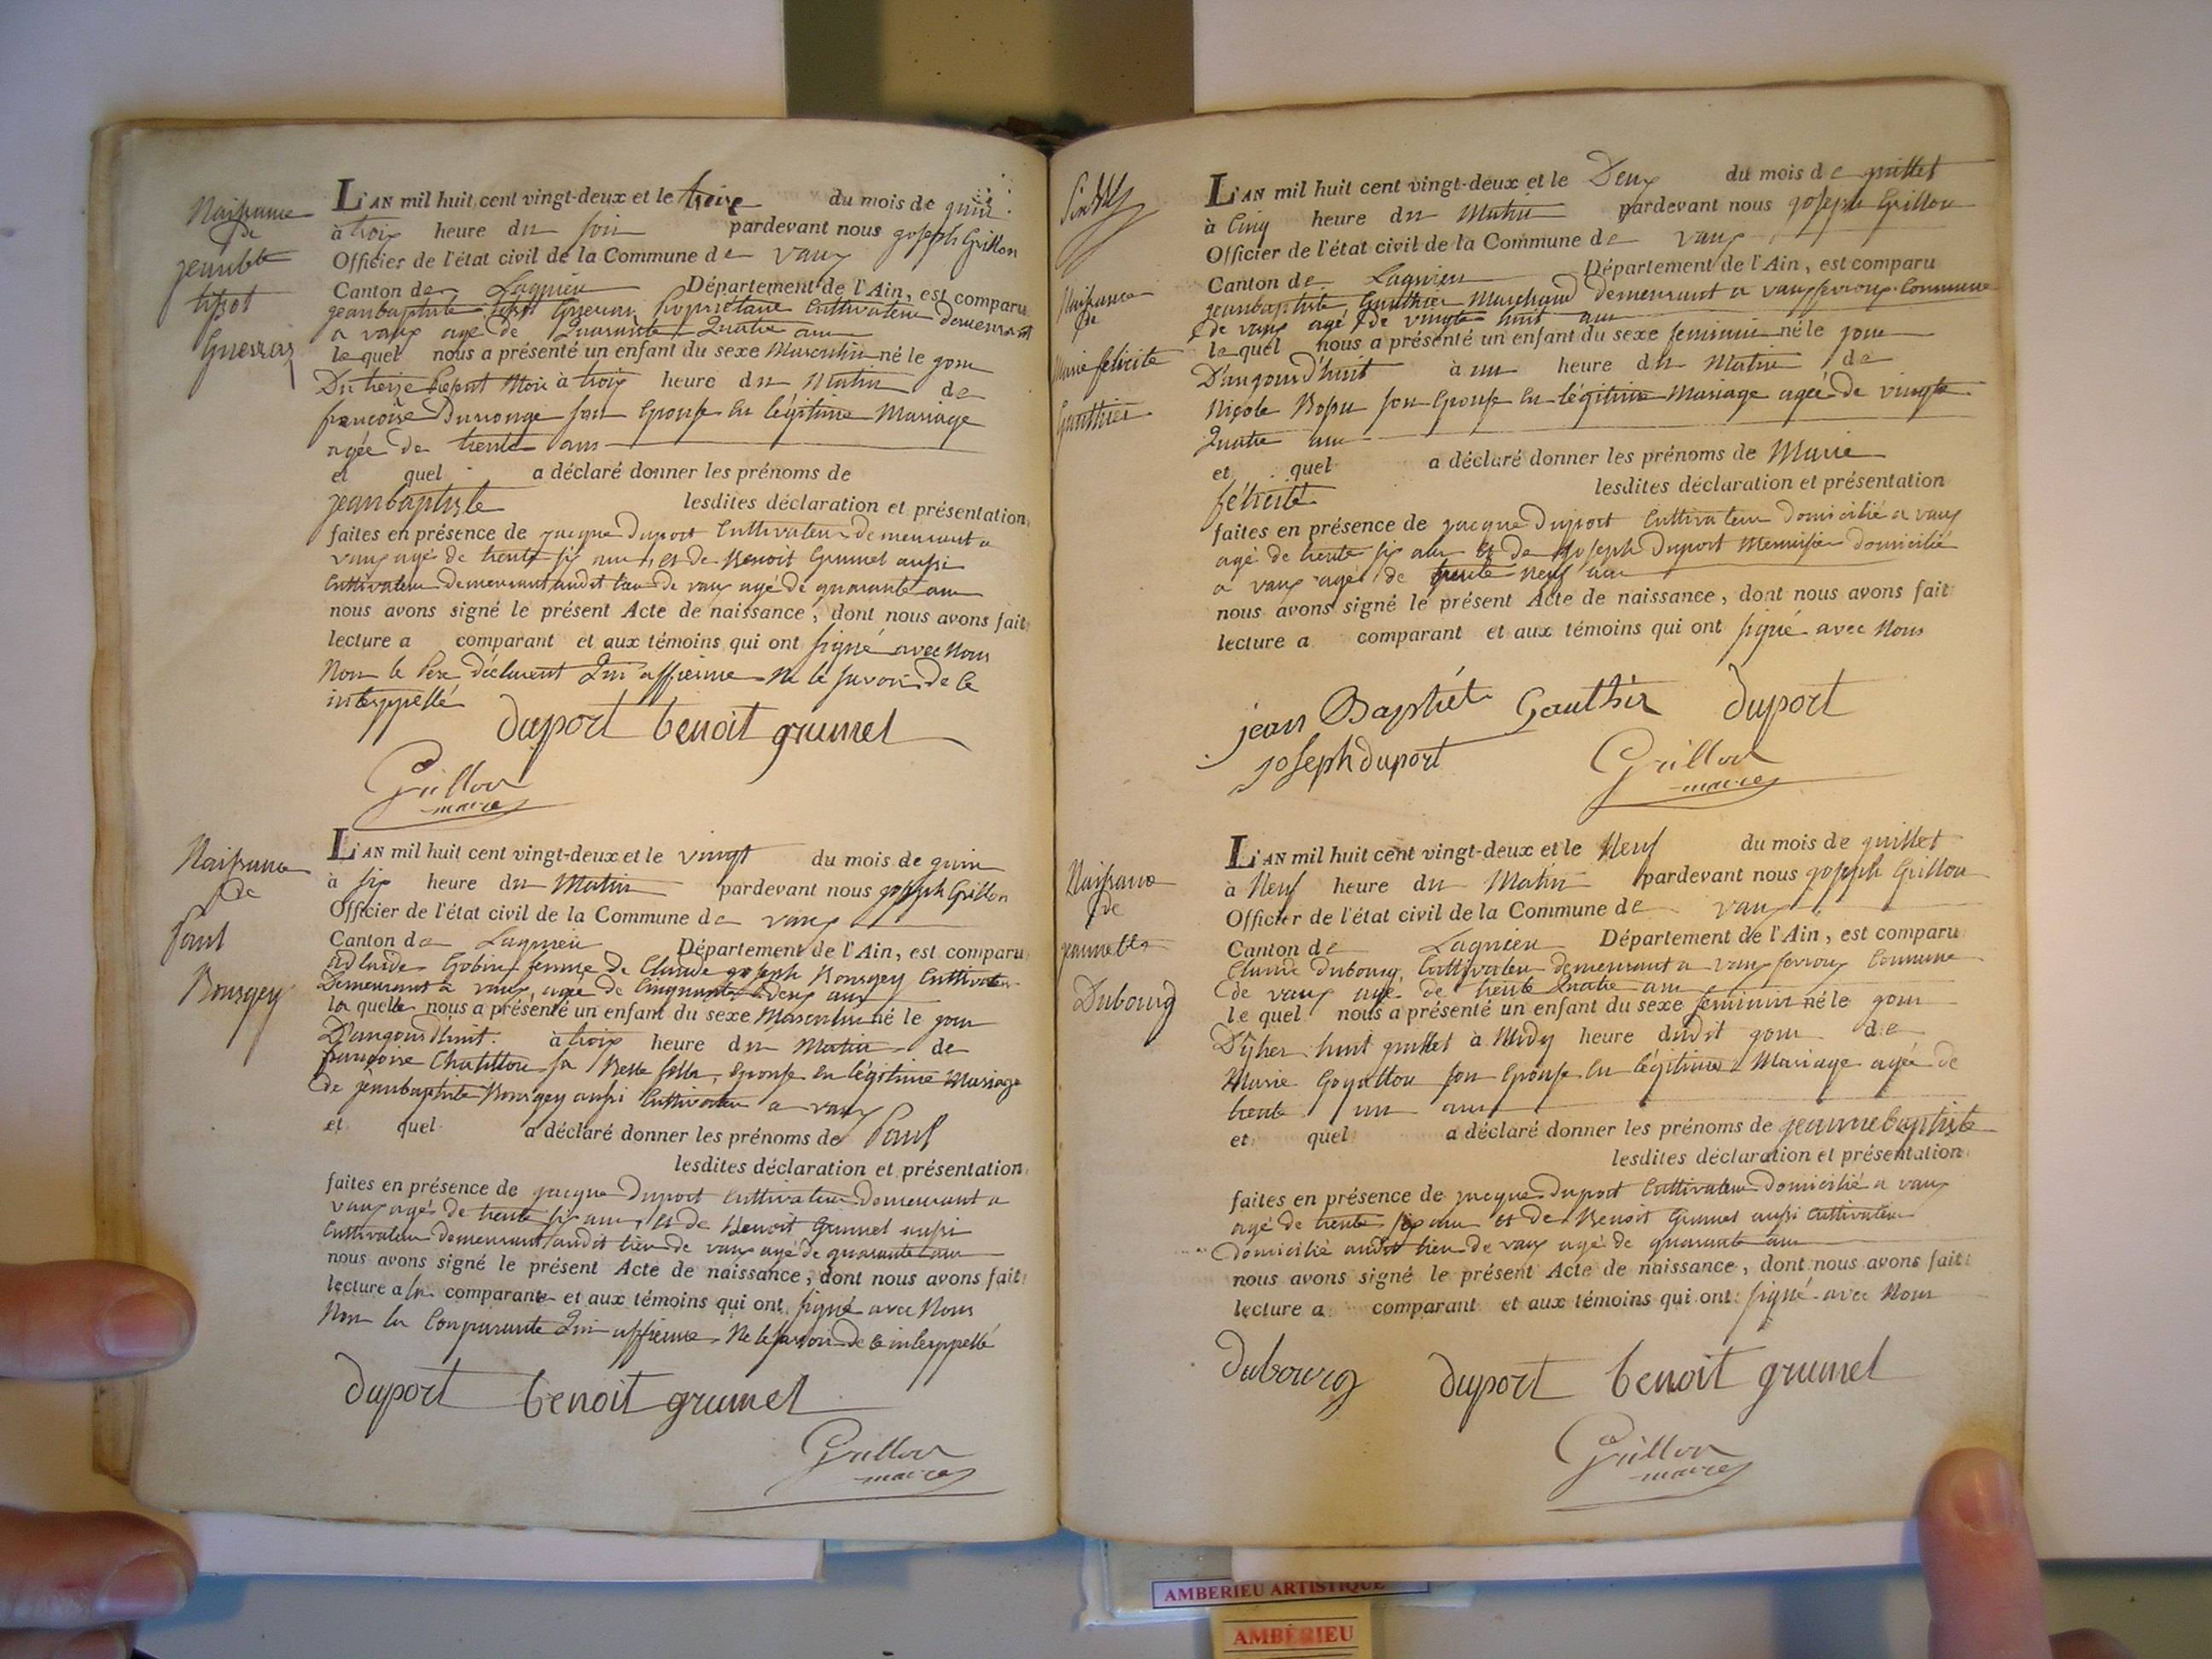 Naissance
de
jeanbte
tissot
Guerraz
L'AN mil huit cent vingt-deux et le treize du mois de guin
à trois heure du soir pardevant nous goseph Grillon
Officier de l'état civil de la Commune de vaux
Canton de Lagnieu Département de l'Ain, est comparu
jeanbaptiste Propriétaire Cultivateur demeurant
a vaux age de Quarante Quatre ans
le quel nous a présenté un enfant du sexe Masculin né le gour
Du treize Présent Mois à trois heure du Matin de
françoise son Epouse En légitime Mariage
agée de trente ans
et quel a déclaré donner les prénoms de
jeanbaptiste lesdites déclaration et présentation
faites en présence de jacque Duport Cultivateur demeurant a
vaux agé de trente six ans, et de Benoit Grumel aussi
Cultivateur demeurant audit lieu de vaux agé de quarante ans
nous avons signé le présent Acte de naissance, dont nous avons fait
lecture a comparant et aux témoins qui ont signé avec Nous
Non le Pere déclarent Qui affirme Ne le savoir de Ce
interppellé
duport benoit grumel
Grillon
maire
Naissance
de
Paul
Bourgey
L'AN mil huit cent vingt-deux et le vingt du mois de guin
à six heure du Matin pardevant nous goseph Grillon
Officier de l'état civil de la Commune de vaux
Canton de Lagnieu Département de l'Ain, est comparu
femme de Claude goseph Bourgey Cultivateur
Demeurant a vaux, agée de Cinquante Deux ans
la quelle nous a présenté un enfant du sexe Masculin né le gour
D'augourdhuit à trois heure du Matin de
françoise Chatillon sa Belle fille, Epouse En légitime Mariage
de jeanbaptiste Bourgey aussi Cultivateur a vaux
et quel a déclaré donner les prénoms de Paul
lesdites déclaration et présentation
faites en présence de jacque Duport Cultivateur demeurant a
vaux agé de trente six ans, et de Benoit Grumel aussi
Cultivateur demeurant audit lieu de vaux agé de quarante ans
nous avons signé le présent Acte de naissance, dont nous avons fait
lecture a la comparante et aux témoins qui ont signé avec Nous
Non la Comparante Qui affirme Ne le savoir de Ce interppellé
duport benoit grumel
Grillon
maire
Naissance
de
Marie félicité
Gauthier
L'AN mil huit cent vingt-deux et le Deux du mois de guillet
à Cinq heure du Matin pardevant nous goseph Grillon
Officier de l'état civil de la Commune de vaux
Canton de Lagnieu Département de l'Ain, est comparu
jeanbaptiste Gauthier Marchand demeurant a vauxfevroux Commune
de vaux agé de vingte huit ans
le quel nous a présenté un enfant du sexe feminin né le gour
D'augourd'huit à un heure du Matin de
Nicole Bossu son Epouse En légitime Mariage agée de vingte
Quatre ans
et quel a déclaré donner les prénoms de Marie
félicité lesdites déclaration et présentation
faites en présence de jacque Duport Cultivateur domicilié a vaux
agé de trente six ans et de goseph Duport Menuisier domicilié
a vaux agé de trente Neuf ans
nous avons signé le présent Acte de naissance, dont nous avons fait
lecture a comparant et aux témoins qui ont signé avec Nous
jean Baptiét Gauthir duport
joseph duport
Grillon
maire
Naissance
de
jeannebte
Dubourg
L'AN mil huit cent vingt-deux et le Neuf du mois de guillet
à Neuf heure du Matin pardevant nous goseph Grillon
Officier de l'état civil de la Commune de vaux
Canton de Lagnieu Département de l'Ain, est comparu
Claude Dubourg, Cultivateur demeurant a vaux fevroux Commune
de vaux agé de trente Quatre ans
le quel nous a présenté un enfant du sexe feminin né le gour
D'yher huit guillet à Midy heure dudit gour de
Marie Goyatton son Epouse En légitime Mariage agée de
trente un ans
et quel a déclaré donner les prénoms de jeannebaptiste
lesdites déclaration et présentation
faites en présence de jacque Duport Cultivateur domicilié a vaux
agé de trente six ans et de Benoit Grumel aussi Cultivateur
Domicilié audit lieu de vaux agé de quarante ans
nous avons signé le présent Acte de naissance, dont nous avons fait
lecture a comparant et aux témoins qui ont signé avec Nous
Dubourg duport benoit grumel
Grillon
maire
AMBERIEU ARTISTIQUE
AMBÉRIEU